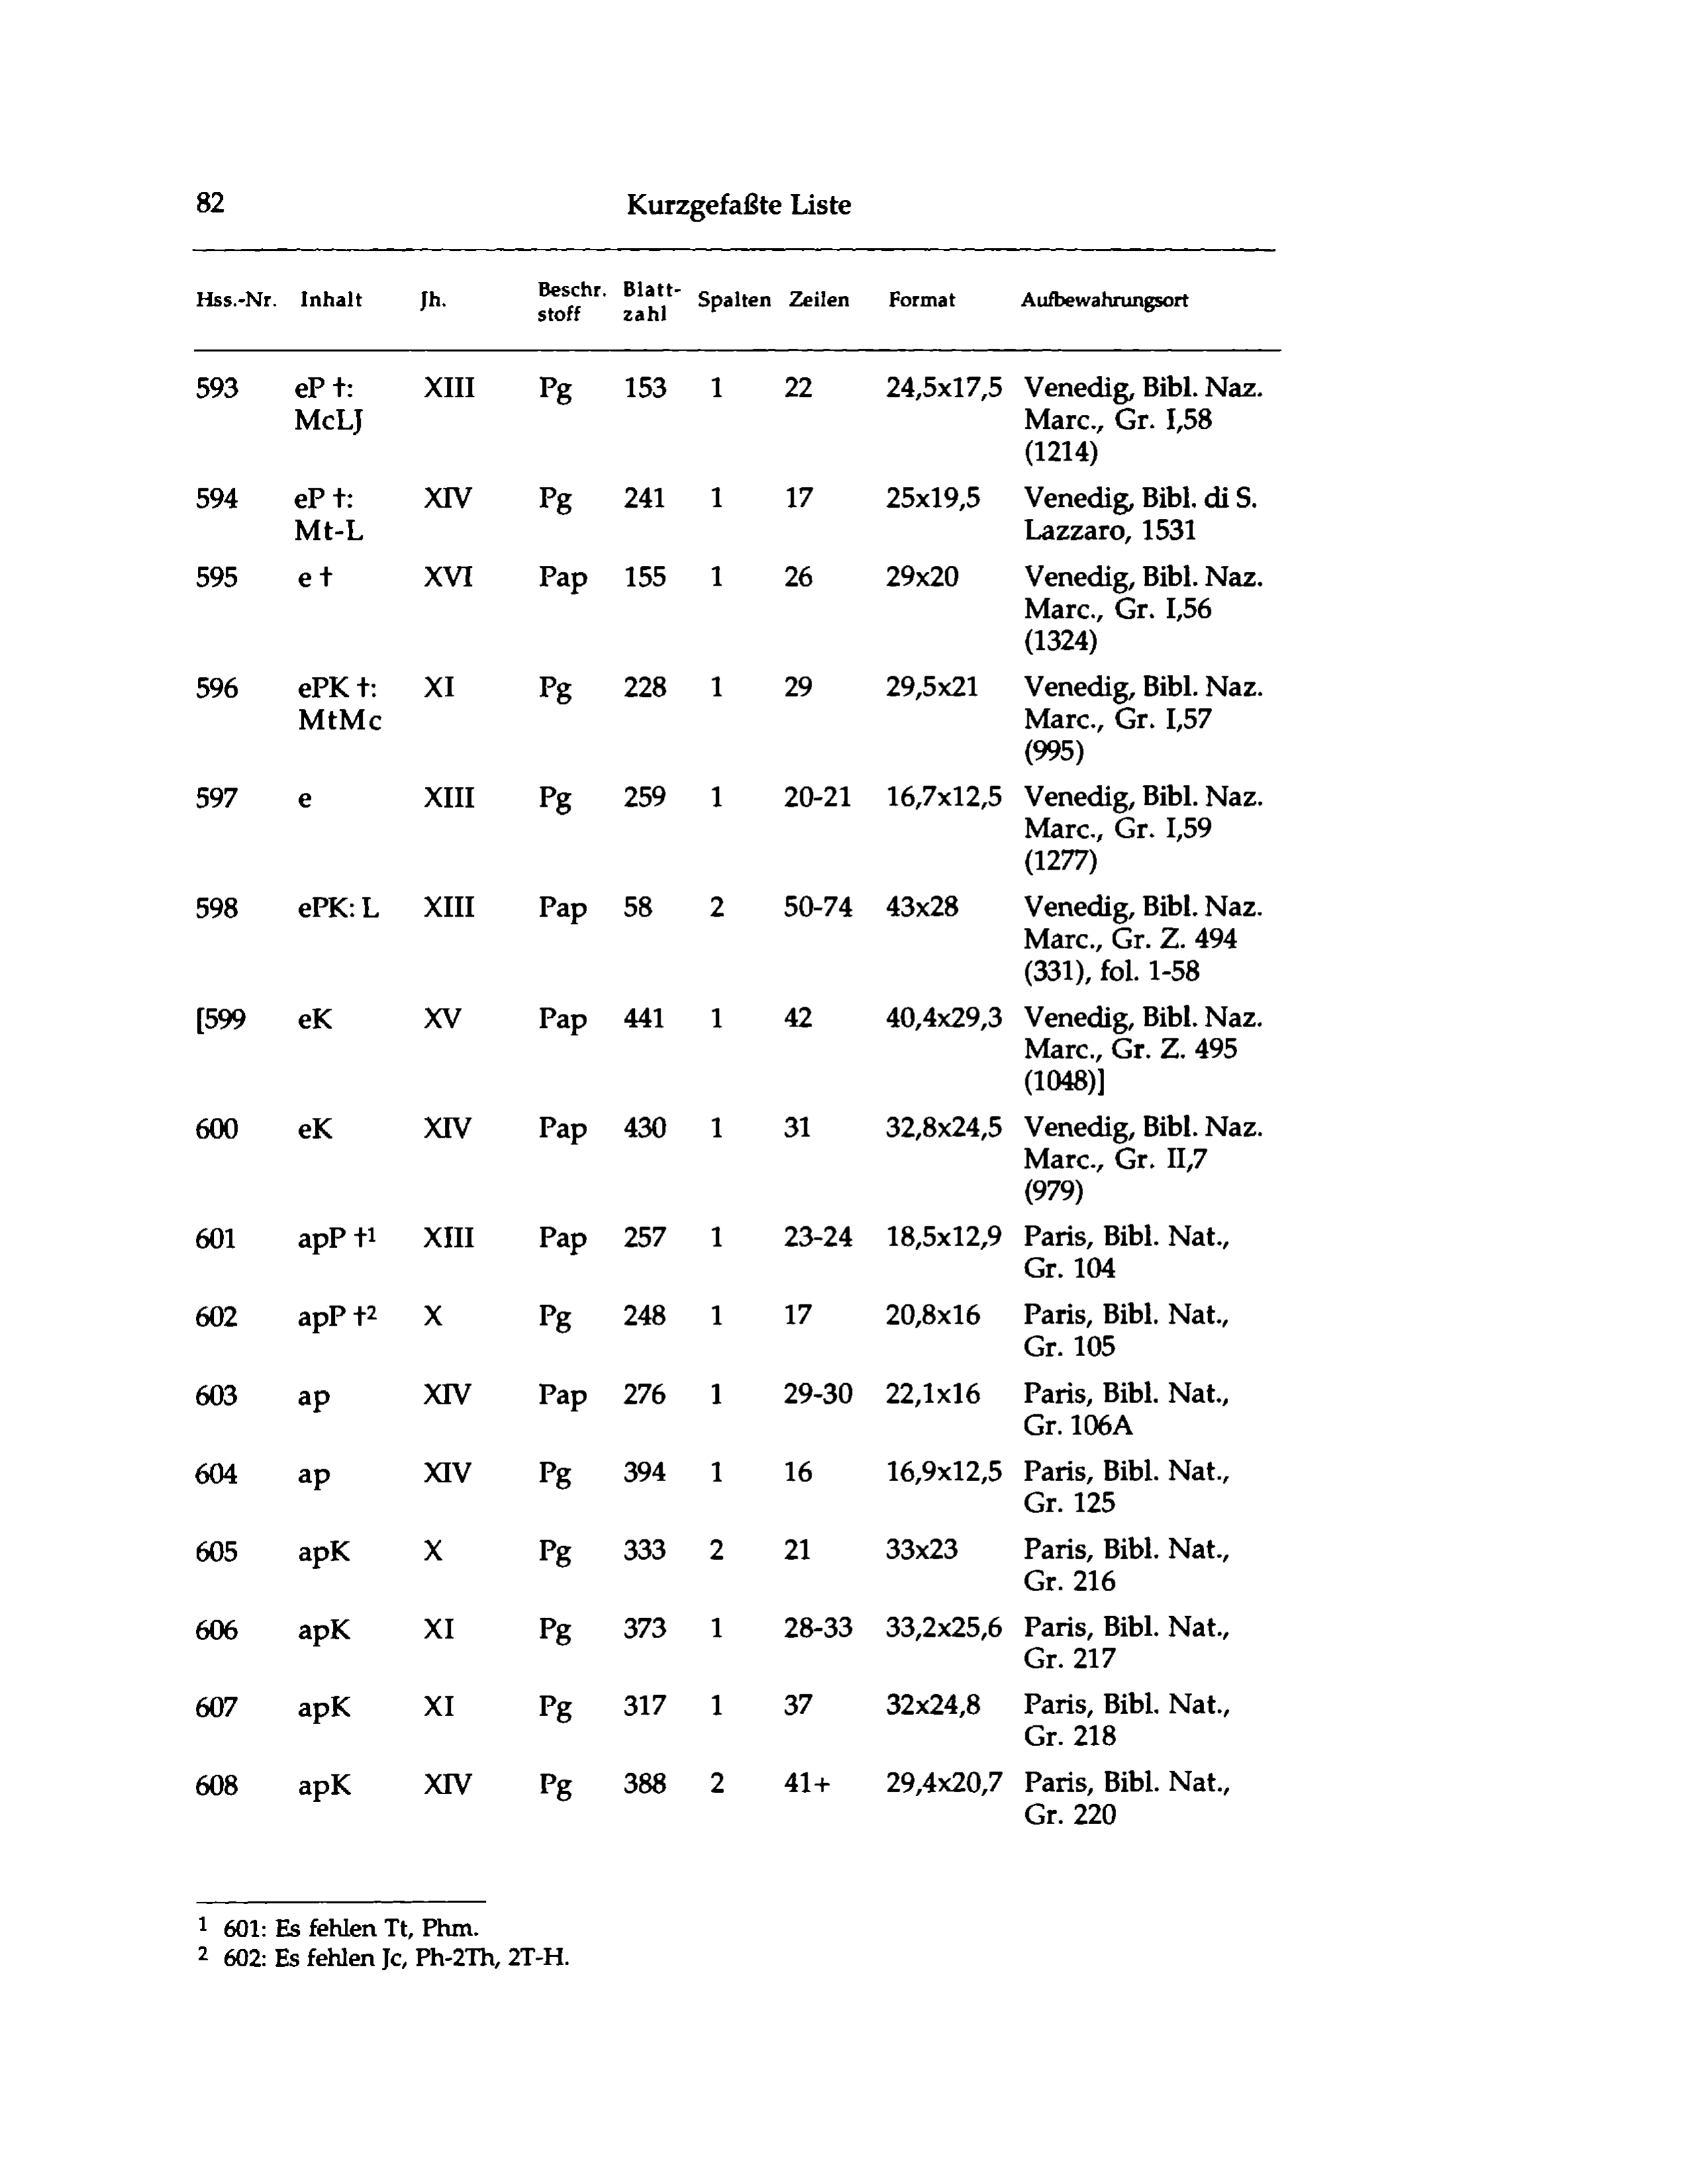 82 Kurzgefaßte Liste
Hss.-Nr. Inhalt Jh. Beschr. Blatt- Spalten Zeilen Format Aufbewahrungsort
stoff zahl
593 eP †: XIII Pg 153 1 22 24,5x17,5 Venedig, Bibl. Naz.
McLJ Marc., Gr. I,58
(1214)
594 eP †: XIV Pg 241 1 17 25x19,5 Venedig, Bibl. di S.
Mt-L Lazzaro, 1531
595 e † XVI Pap 155 1 26 29x20 Venedig, Bibl. Naz.
Marc., Gr. I,56
(1324)
596 ePK †: XI Pg 228 1 29 29,5x21 Venedig, Bibl. Naz.
MtMc Marc., Gr. I,57
(995)
597 e XIII Pg 259 1 20-21 16,7x12,5 Venedig, Bibl. Naz.
Marc., Gr. I,59
(1277)
598 ePK: L XIII Pap 58 2 50-74 43x28 Venedig, Bibl. Naz.
Marc., Gr. Z. 494
(331), fol. 1-58
[599 eK XV Pap 441 1 42 40,4x29,3 Venedig, Bibl. Naz.
Marc., Gr. Z. 495
(1048)]
600 eK XIV Pap 430 1 31 32,8x24,5 Venedig, Bibl. Naz.
Marc., Gr. II,7
(979)
601 apP †1 XIII Pap 257 1 23-24 18,5x12,9 Paris, Bibl. Nat.,
Gr. 104
602 apP †2 X Pg 248 1 17 20,8x16 Paris, Bibl. Nat.,
Gr. 105
603 ap XIV Pap 276 1 29-30 22,1x16 Paris, Bibl. Nat.,
Gr. 106A
604 ap XIV Pg 394 1 16 16,9x12,5 Paris, Bibl. Nat.,
Gr. 125
605 apK X Pg 333 2 21 33x23 Paris, Bibl. Nat.,
Gr. 216
606 apK XI Pg 373 1 28-33 33,2x25,6 Paris, Bibl. Nat.,
Gr. 217
607 apK XI Pg 317 1 37 32x24,8 Paris, Bibl. Nat.,
Gr. 218
608 apK XIV Pg 388 2 41+ 29,4x20,7 Paris, Bibl. Nat.,
Gr. 220
1 601: Es fehlen Tt, Phm.
2 602: Es fehlen Jc, Ph-2Th, 2T-H.